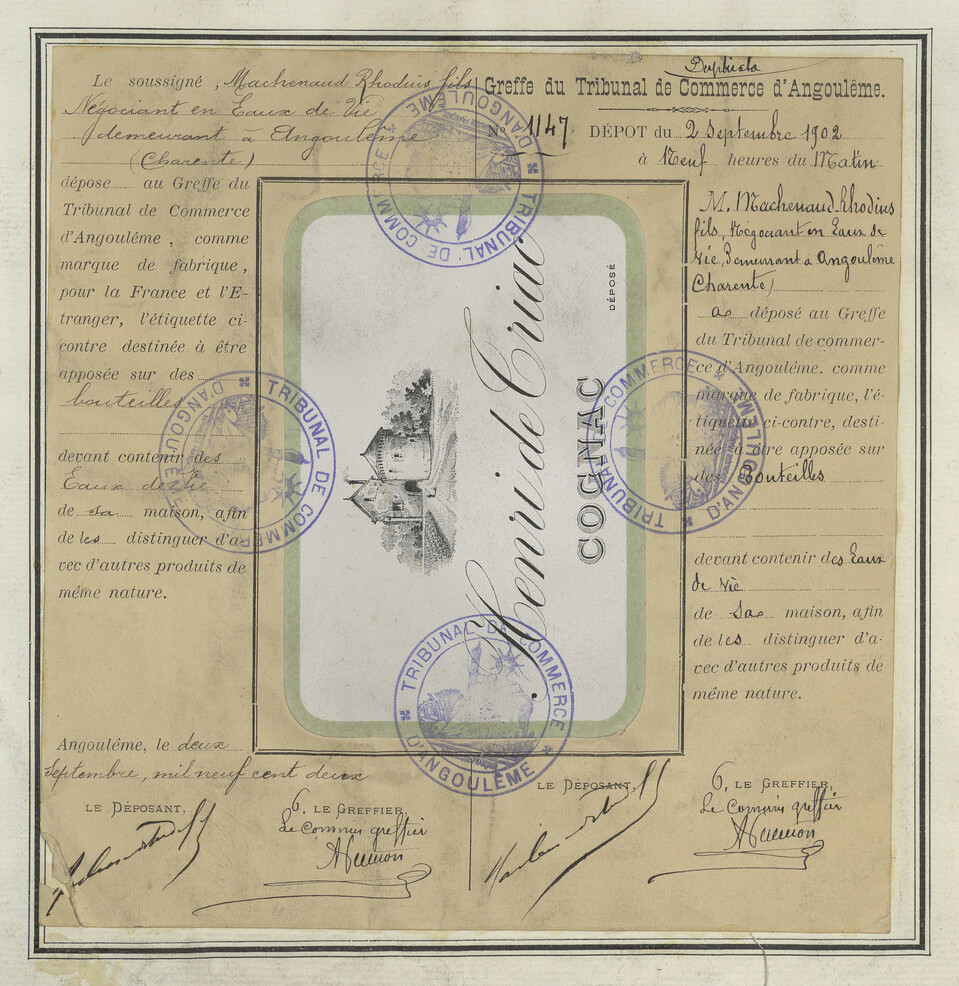 Le soussigné, Machenaud Rhodius fils
Négociant en Eaux de Vie
demeurant à Angoulême
(Charente)
dépose au Greffe du
Tribunal de Commerce
d'Angoulême, comme
marque de fabrique,
pour la France et l'E-
tranger, l'étiquette ci-
contre destinée à être
apposée sur des
bouteilles
devant contenir des
Eaux de Vie
de sa maison, afin
de les distinguer d'a-
vec d'autres produits de
même nature.
Angoulême, le deux
Septembre, mil neuf cent deux
LE DÉPOSANT,
LE GREFFIER,
Le Commis greffier
Duplicata
Greffe du Tribunal de Commerce d'Angoulême.
No 1147 DÉPOT du 2 Septembre 1902
à Neuf heures du Matin
M. Machenaud-Rhodius
fils, Négociant en Eaux de
Vie, Demeurant à Angoulême
Charente)
a déposé au Greffe
du Tribunal de commer-
ce d'Angoulême. comme
marque de fabrique, l'é-
tiquette ci-contre, desti-
née à être apposée sur
des Bouteilles
devant contenir des Eaux
de Vie
de Sa maison, afin
de les distinguer d'a-
vec d'autres produits de
même nature.
LE DÉPOSANT,
LE GREFFIER,
Le Commis greffier
Henri de Criac
COGNAC
DÉPOSÉ
TRIBUNAL DE COMMERCE D'ANGOULÊME
TRIBUNAL DE COMMERCE D'ANGOULÊME
TRIBUNAL DE COMMERCE D'ANGOULÊME
TRIBUNAL DE COMMERCE D'ANGOULÊME